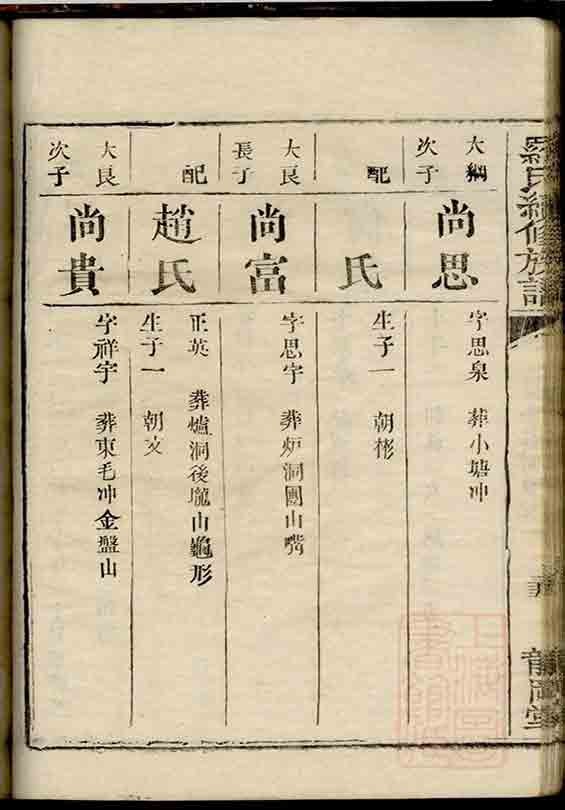 羅氏續修族譜
大綱次子
尚思
字思泉 葬小塘冲
配
氏
生子一 朝彬
大良長子
尚富
字思宇 葬炉洞團山嘴
配
趙氏
正英 葬爐洞後壠山龜形
生子一 朝文
大良次子
尚貴
字祥宇 葬東毛冲金盤山